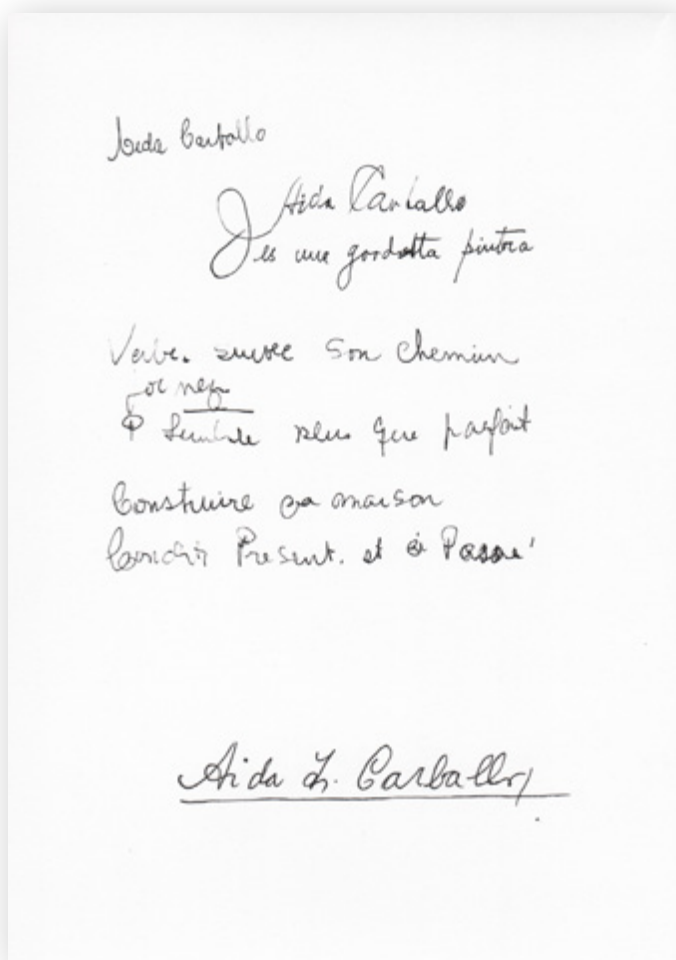 Aida Carballo
Aida Carballo
es una gordetta pintra
Verbe. suivre son chemin
plus que parfait
Construire sa maison
Present. et à Passé
Aida L. Carballo